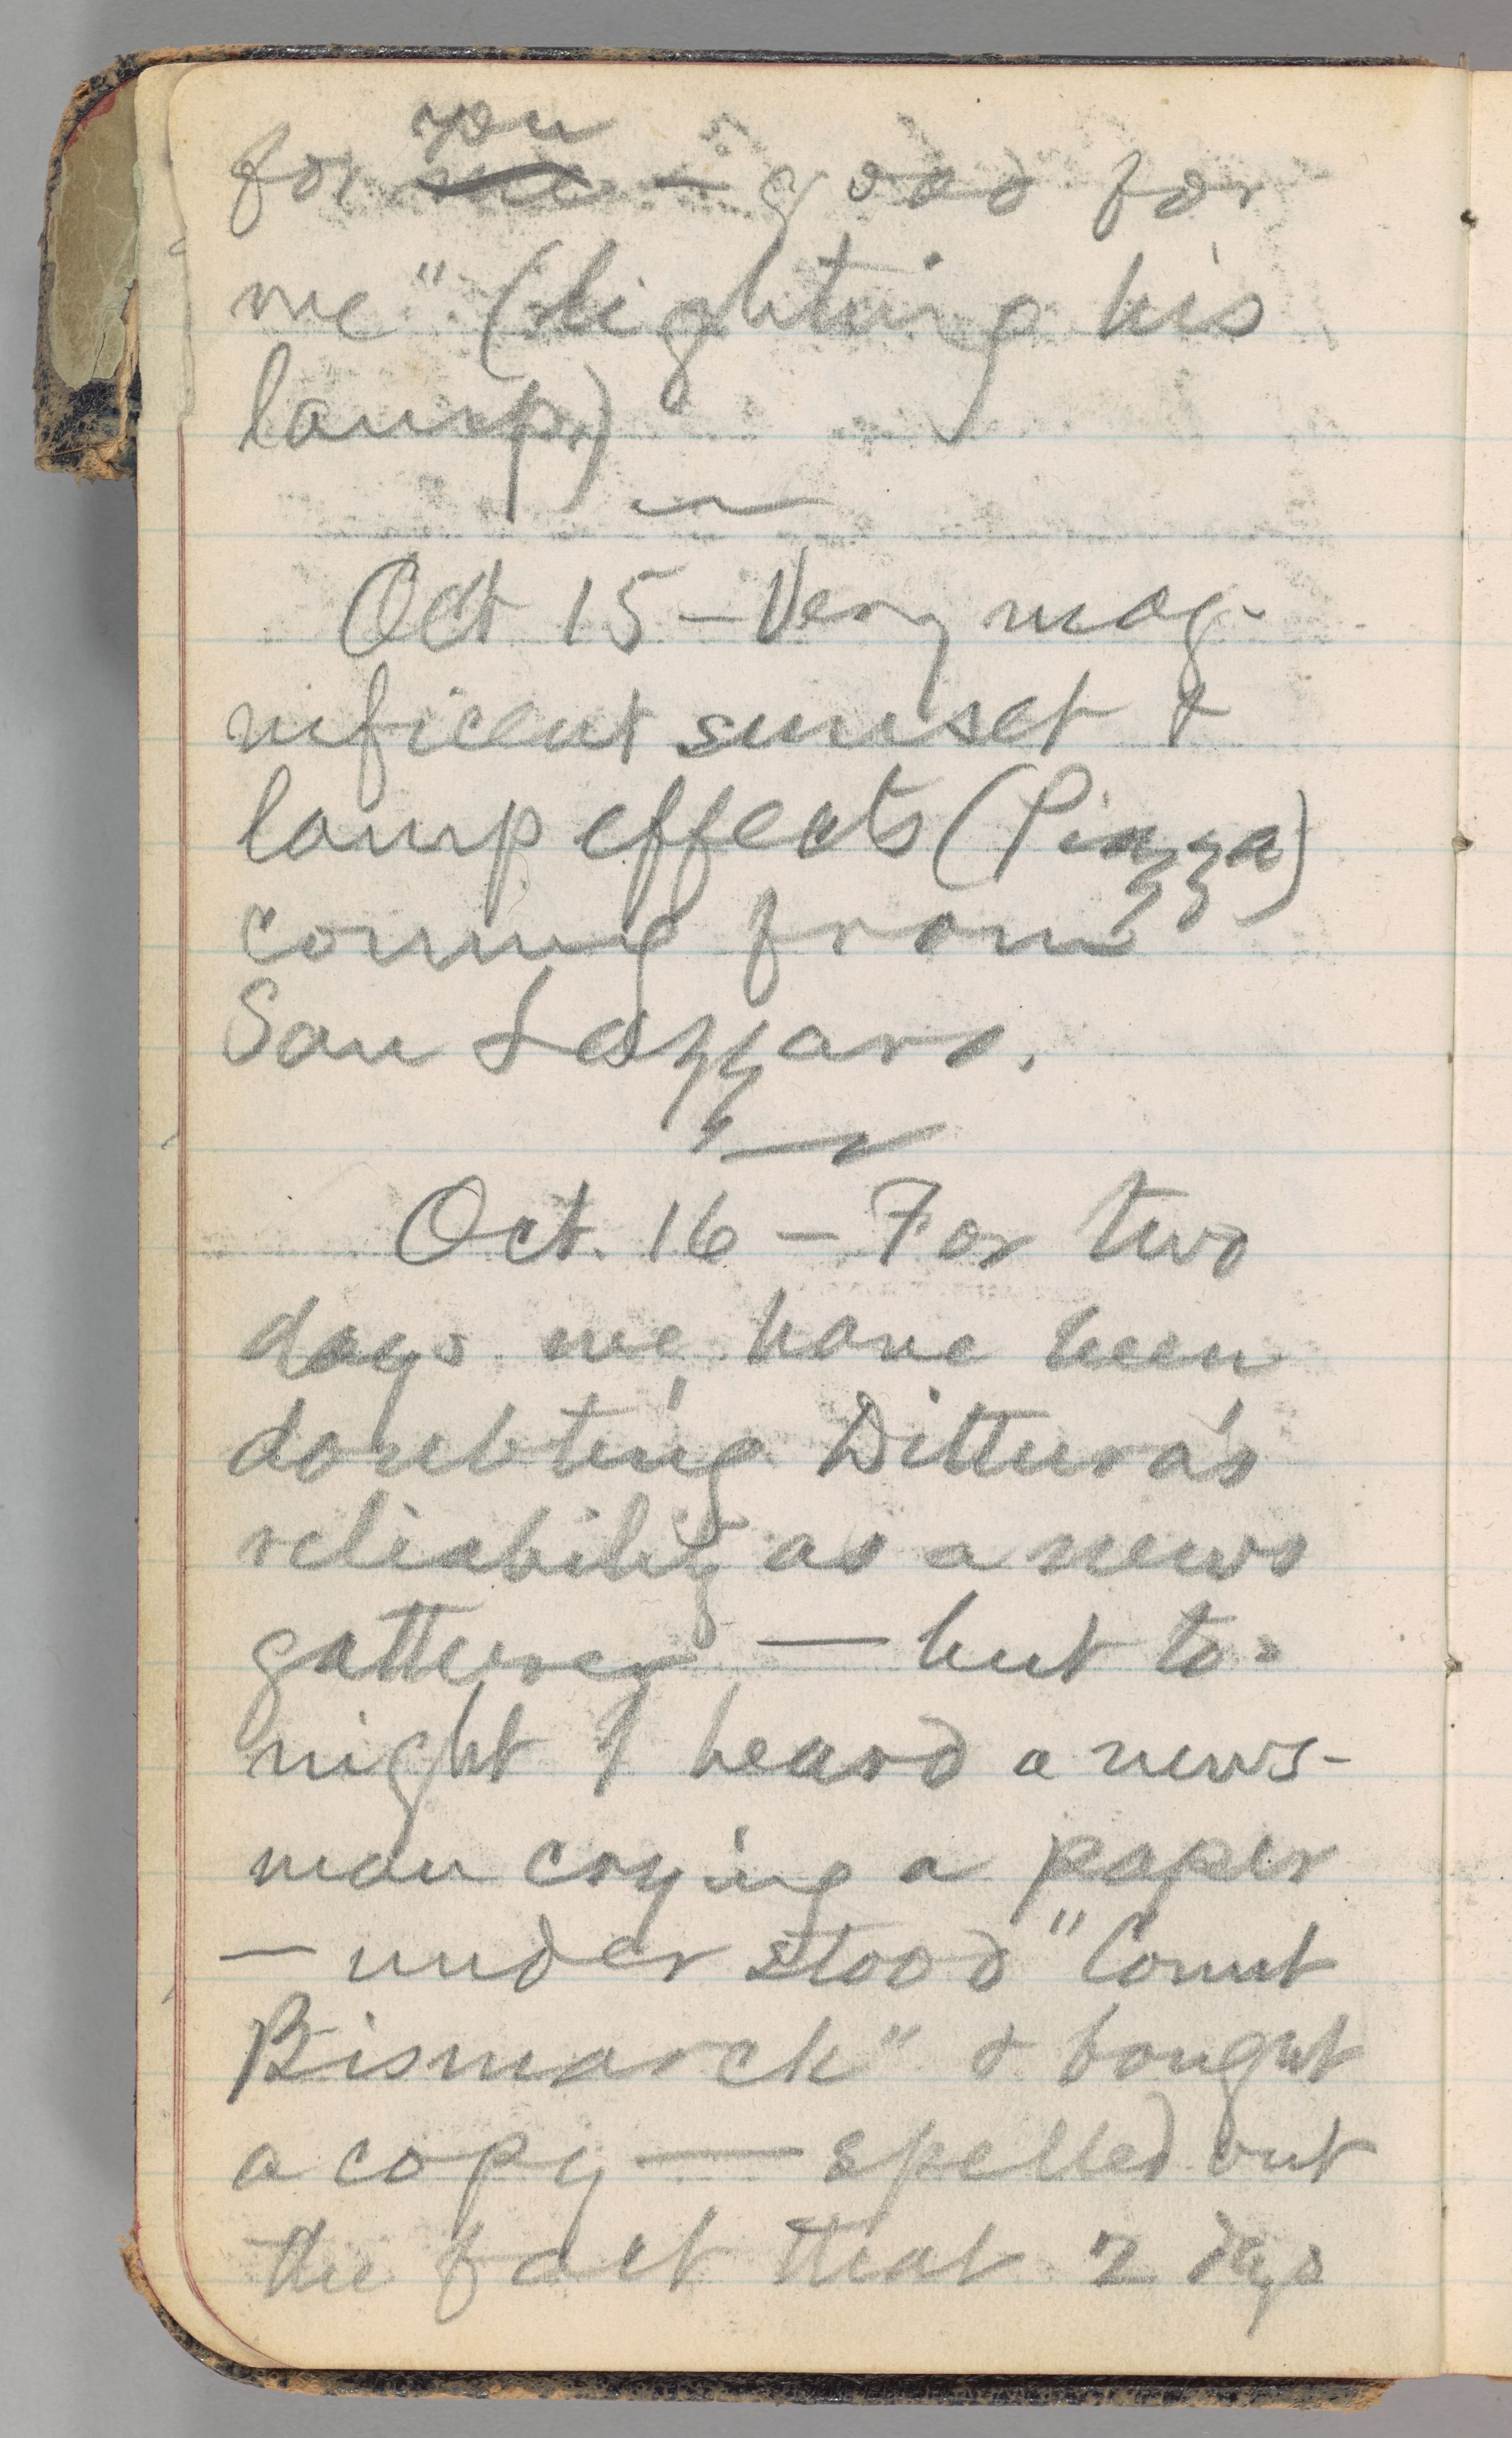 for you me — good for
me" (lighting his
lamp.)
Oct 15 — Very mag-
nificent sunset &
lamp effects (Piazza)
coming from
San Lazzaro.
Oct. 16 — For two
days we have been
doubting Dittura's
reliability as a news
gatherer — but to-
night I heard a news-
man crying a paper
— understood "Count
Bismarck" & bought
a copy — spelled out
the fact that 2 dys